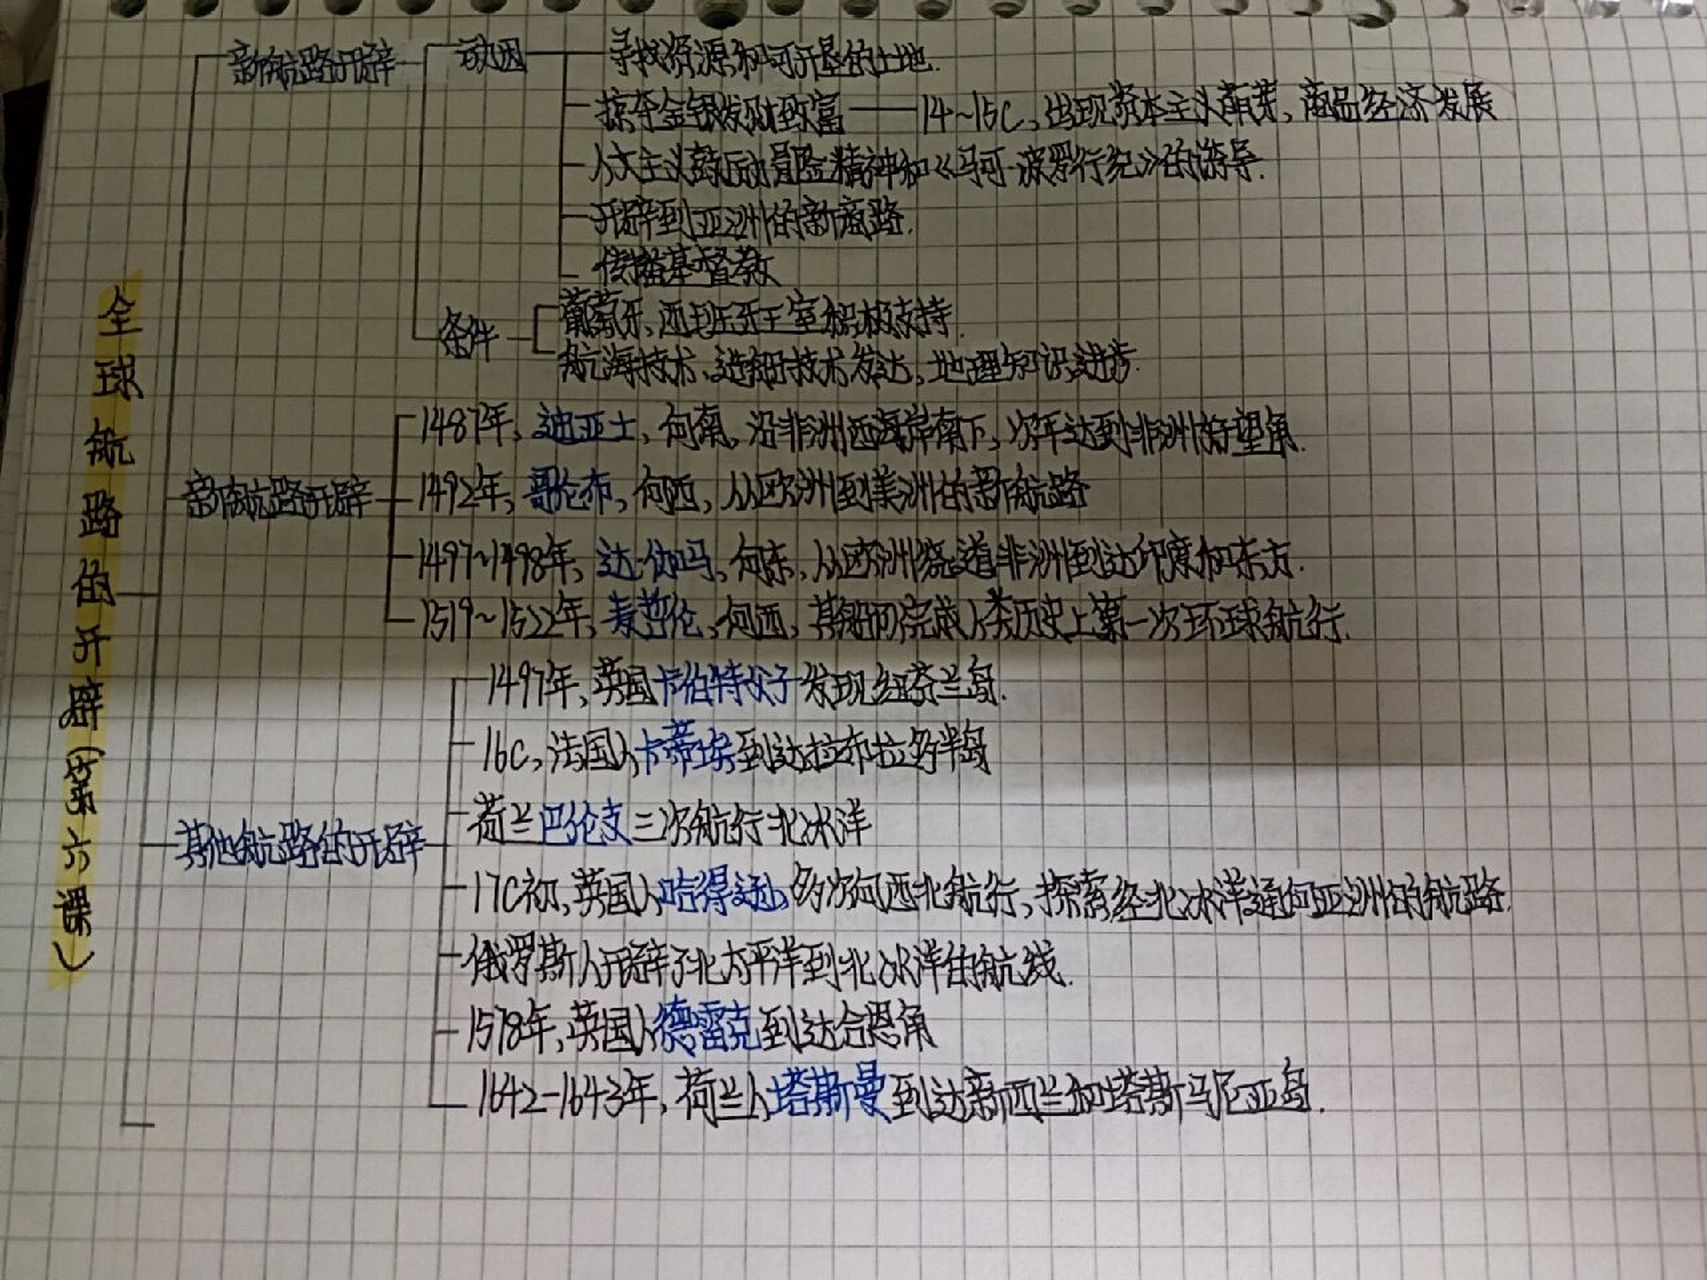 全球航路的开辟(第六课)
新航路开辟
动因
寻找资源和可开垦的土地.
掠夺金银发财致富——14~15C,出现资本主义萌芽,商品经济发展
人文主义鼓励冒险精神和《马可·波罗行纪》的诱导.
开辟到亚洲的新商路.
传播基督教
条件
葡萄牙、西班牙王室积极支持.
航海技术、造船技术发达,地理知识进步.
新航路开辟
1487年,迪亚士,向南,沿非洲西海岸南下,次年达到非洲好望角.
1492年,哥伦布,向西,从欧洲到美洲的新航路
1497~1498年,达·伽马,向东,从欧洲绕道非洲到达印度和东方.
1519~1522年,麦哲伦,向西,其船队完成人类历史上第一次环球航行.
其他航路的开辟
1497年,英国卡伯特父子发现纽芬兰岛.
16C,法国人卡蒂埃到达拉布拉多半岛
荷兰巴伦支三次航行北冰洋
17C初,英国人哈得逊,多次向西北航行,探索经北冰洋通向亚洲的航路.
俄罗斯人开辟了北太平洋到北冰洋的航线.
1578年,英国人德雷克到达合恩角
1642-1643年,荷兰人塔斯曼到达新西兰和塔斯马尼亚岛.